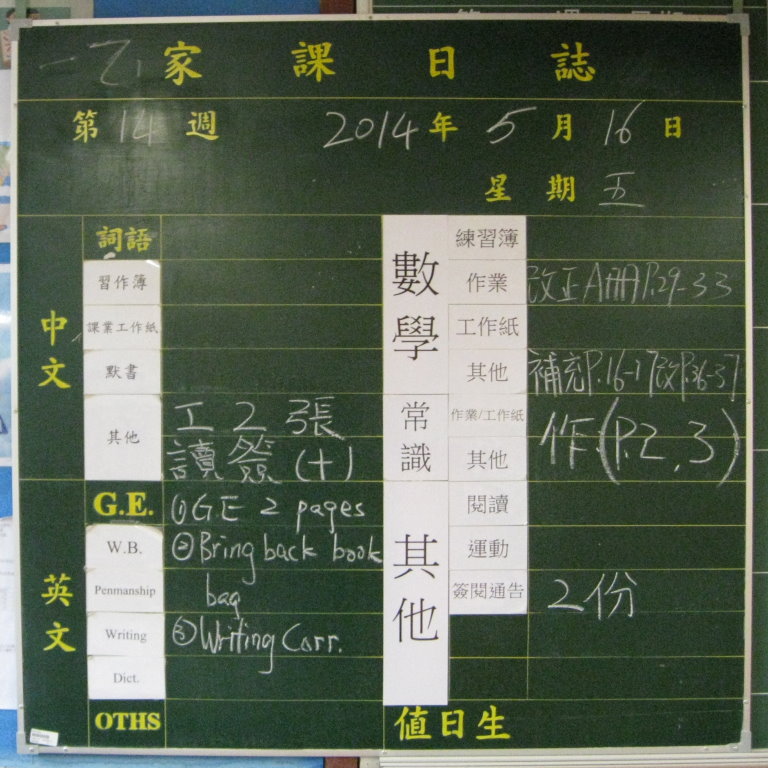 一乙 家課日誌
第 14 週 2014年 5 月 16 日
星期 五
中文
詞語
習作簿
課業工作紙
默書
其他
工 2 張
讀 簽 (十)
英文
G.E.
W.B.
Penmanship
Writing
Dict.
OTHS
①GE 2 pages
②Bring back book
bag
③Writing Corr.
數學
練習簿
作業 改正 P.29-33
工作紙
其他 補充P.16-17 改P.36-37
常識
作業/工作紙
其他
作.(P.2, 3)
其他
閱讀
運動
簽閱通告 2份
值日生